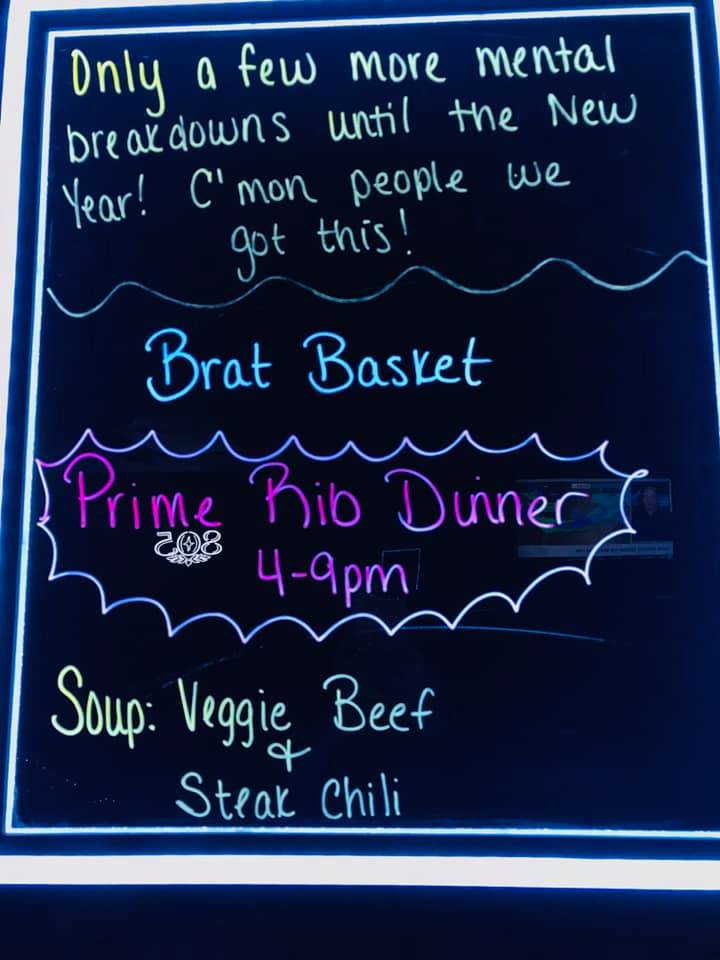 Only a few more mental
breakdowns until the New
Year! C'mon people we
got this!
Brat Basket
Prime Rib Dinner
4-9pm
Soup: Veggie Beef
&
Steak Chili